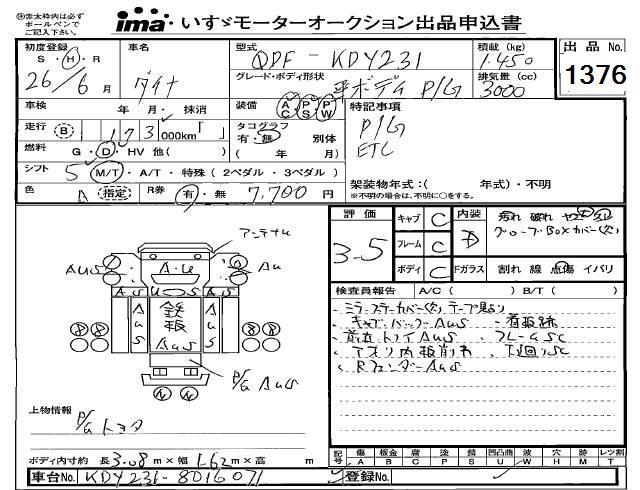 ㊟赤太枠内は必ず
ボールペンで
ご記入下さい。
ima・いすゞモーターオークション出品申込書
初度登録 車名 型式 QDF-KDY231 積載(kg) 1.450 出品No.
S・H・R 26/6月 ダイナ グレード・ボディ形状 平ボディ P/G 排気量(cc) 3000 1376
車検 年 月・抹消 装備 AC PS PW 特記事項
走行 B 173 000km「 」 タコグラフ 有・無 別体 P/G
燃料 G・D・HV 他( ) ( 年 月) ETC
シフト 5 M/T・A/T・特殊(2ペダル・3ペダル)
架装物年式:( 年式)・不明
色 指定 R券 有・無 7,700円
※不明の場合は、不明に○をする。
評価 3.5 キャブ C 内装 D
フレーム C グローブBOXカバー(欠)
ボディ C Fガラス 割れ 線 点傷 イバリ
アンテナ
AUS A・U AU
検査員報告 A/C( ) B/T( )
AUS UO AUS
AUS 鉄板 AUS
AUS
P/G AUS
ミラーステーカバー(欠)
キャブバックAUS
Rフェンダー AUS
上物情報
P/G トヨタ
ボディ内寸約 長3.08m×幅1.62m×高 m
記号 傷 板金 腐 塗 錆 凹凸曲 波 穴 跡 レツ割
A B C P S U W H M T
車台No. KDY231-8016071 登録No.